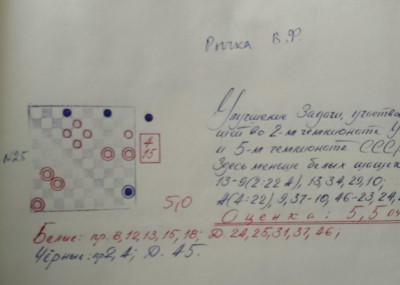 Рычка В.Ф.
Улучшение задачи, участво
во 2-м чемпионате
и 5-м чемпионате СССР
Здесь меньше белых шашек
№25
4
15
13-9(2:22A), 13,34,29,10;
5,0
A(4:22), 9,37-10, 46-23,24,
Оценка: 5,5 оч
Белые: пр. 8,12,13,15,18; Д. 24,25,31,37,46;
Чёрные: пр 2,4; Д. 45.